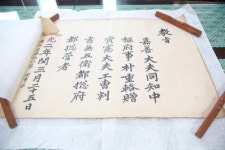 教旨
嘉善大夫同知中
樞府事朴重拾贈
資憲大夫工曹判
書兼五衛都捴府
都捴管者
光
二年閏三月二十五日